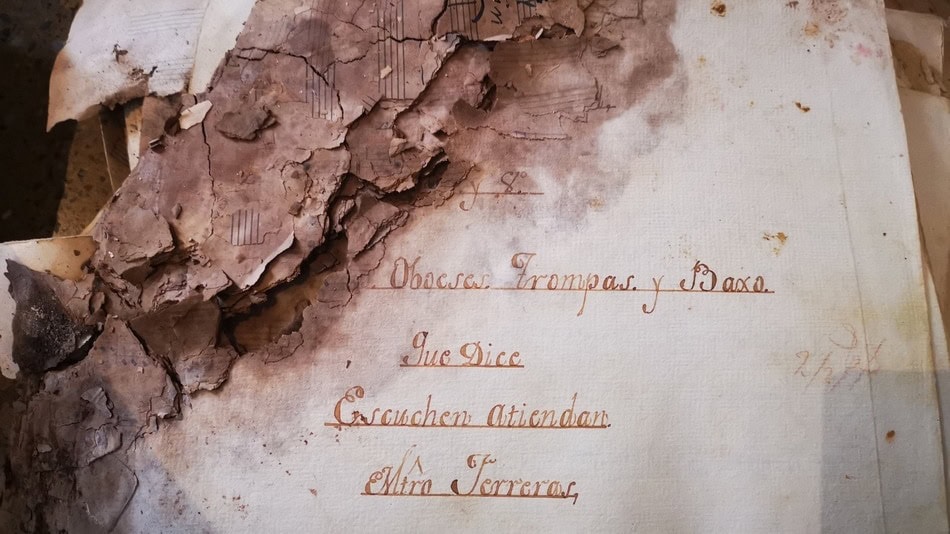 y 8º
Oboeses. Trompas. y Baxo.
Que Dice
Escuchen atiendan.
Mtrô Terreras,